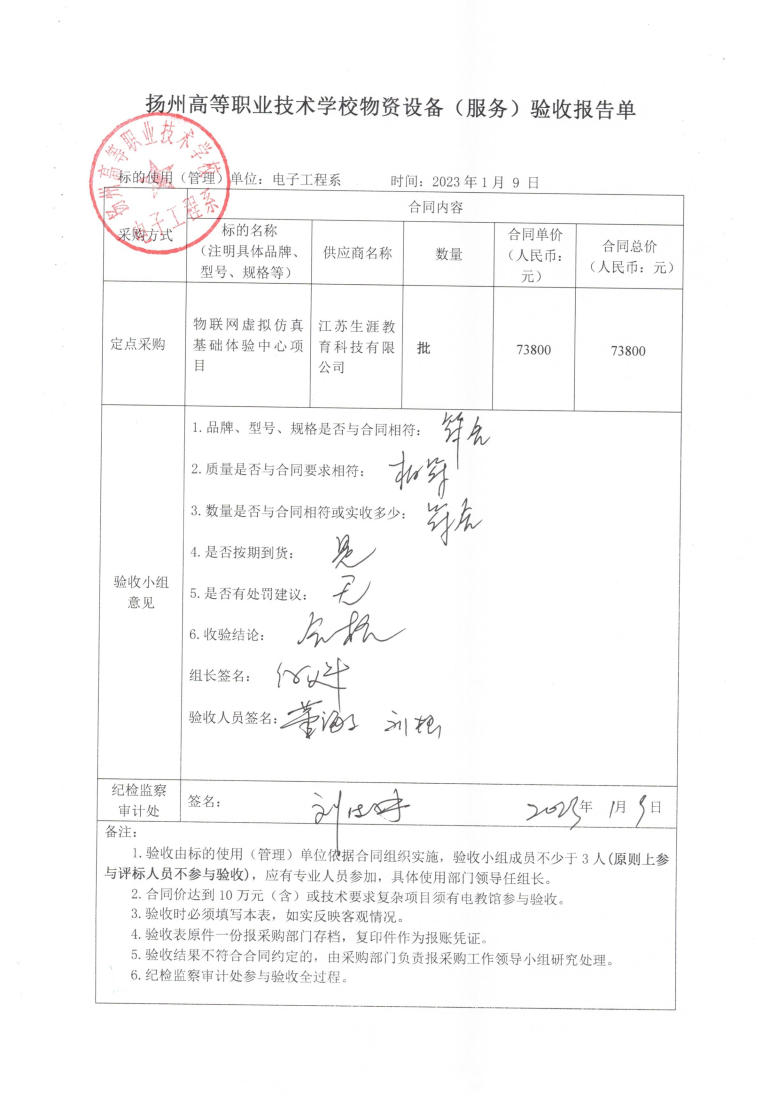 扬州高等职业技术学校物资设备（服务）验收报告单
扬州高等职业技术学校
电子工程系
标的使用（管理）单位：电子工程系 时间：2023 年 1 月 9 日
采购方式
合同内容
标的名称
（注明具体品牌、
型号、规格等）
供应商名称
数量
合同单价
（人民币：
元）
合同总价
（人民币：元）
定点采购
物联网虚拟仿真
基础体验中心项
目
江苏生涯教
育科技有限
公司
批
73800
73800
验收小组
意见
1.品牌、型号、规格是否与合同相符： 符合
2.质量是否与合同要求相符： 相符
3.数量是否与合同相符或实收多少： 符合
4.是否按期到货： 是
5.是否有处罚建议： 无
6.收验结论： 合格
组长签名：
验收人员签名： 刘松
纪检监察
审计处
签名：
2023年 1月 9日
备注：
1.验收由标的使用（管理）单位依据合同组织实施，验收小组成员不少于 3 人(原则上参
与评标人员不参与验收)，应有专业人员参加，具体使用部门领导任组长。
2.合同价达到 10 万元（含）或技术要求复杂项目须有电教馆参与验收。
3.验收时必须填写本表，如实反映客观情况。
4.验收表原件一份报采购部门存档，复印件作为报账凭证。
5.验收结果不符合合同约定的，由采购部门负责报采购工作领导小组研究处理。
6.纪检监察审计处参与验收全过程。